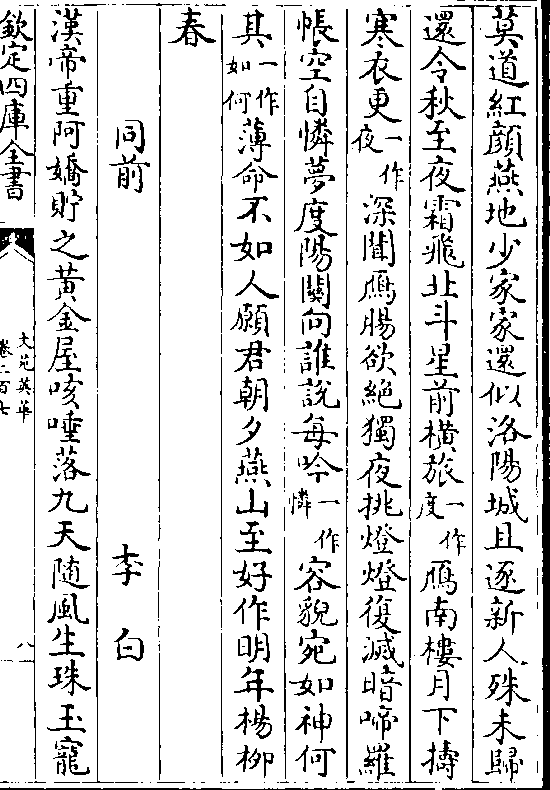 莫道紅顔燕地少家家還似洛陽城且逐新人殊未歸
還令秋至夜霜飛北斗星前橫旅一作度鴈南樓月下擣
寒衣更一作夜深聞鴈腸欲絶獨夜挑燈燈復滅暗啼羅
帳空自憐夢度陽關向誰說每吟一作憐容貌宛如神何
其一作如何薄命不如人願君朝夕燕山至好作明年楊栁
春
同前 李白
漢帝重阿嬌貯之黄金屋咳唾落九天随風生珠玉寵
欽定四庫全書
文苑英華
卷二百七
八